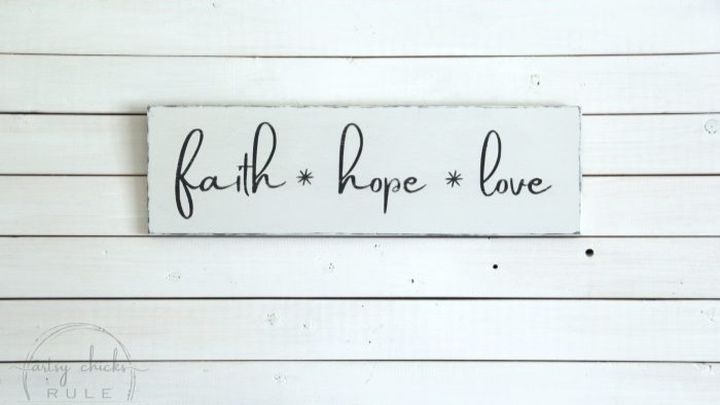 faith * hope * love
artsy chicks
RULE